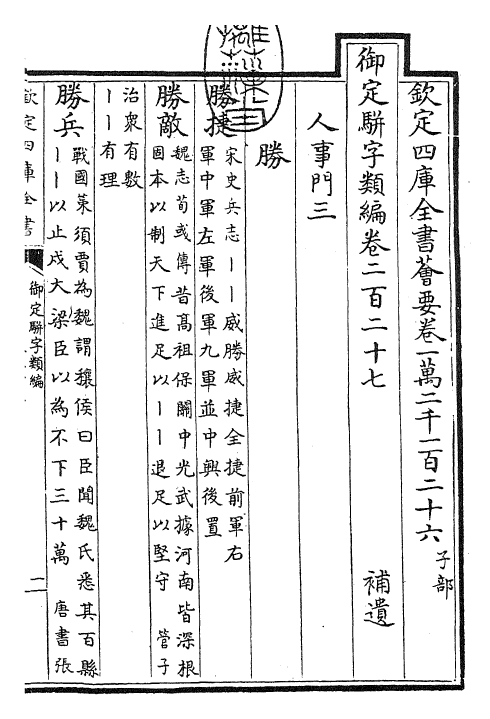 欽定四庫全書薈要卷一萬二千一百二十六 子部
御定駢字類編卷二百二十七 補遺
人事門三
勝
勝捷 宋史兵志丨丨威勝威捷全捷前軍右
軍中軍左軍後軍九軍並中興後置
勝敵 魏志荀彧傳昔髙祖保關中光武據河南皆深根
固本以制天下進足以丨丨退足以堅守 管子
治衆有數
丨丨有理
勝兵 戰國策須賈為魏謂穰侯曰臣聞魏氏悉其百縣
丨丨以止戍大梁臣以為不下三十萬 唐書張
欽定四庫全書
御定駢字類編
二